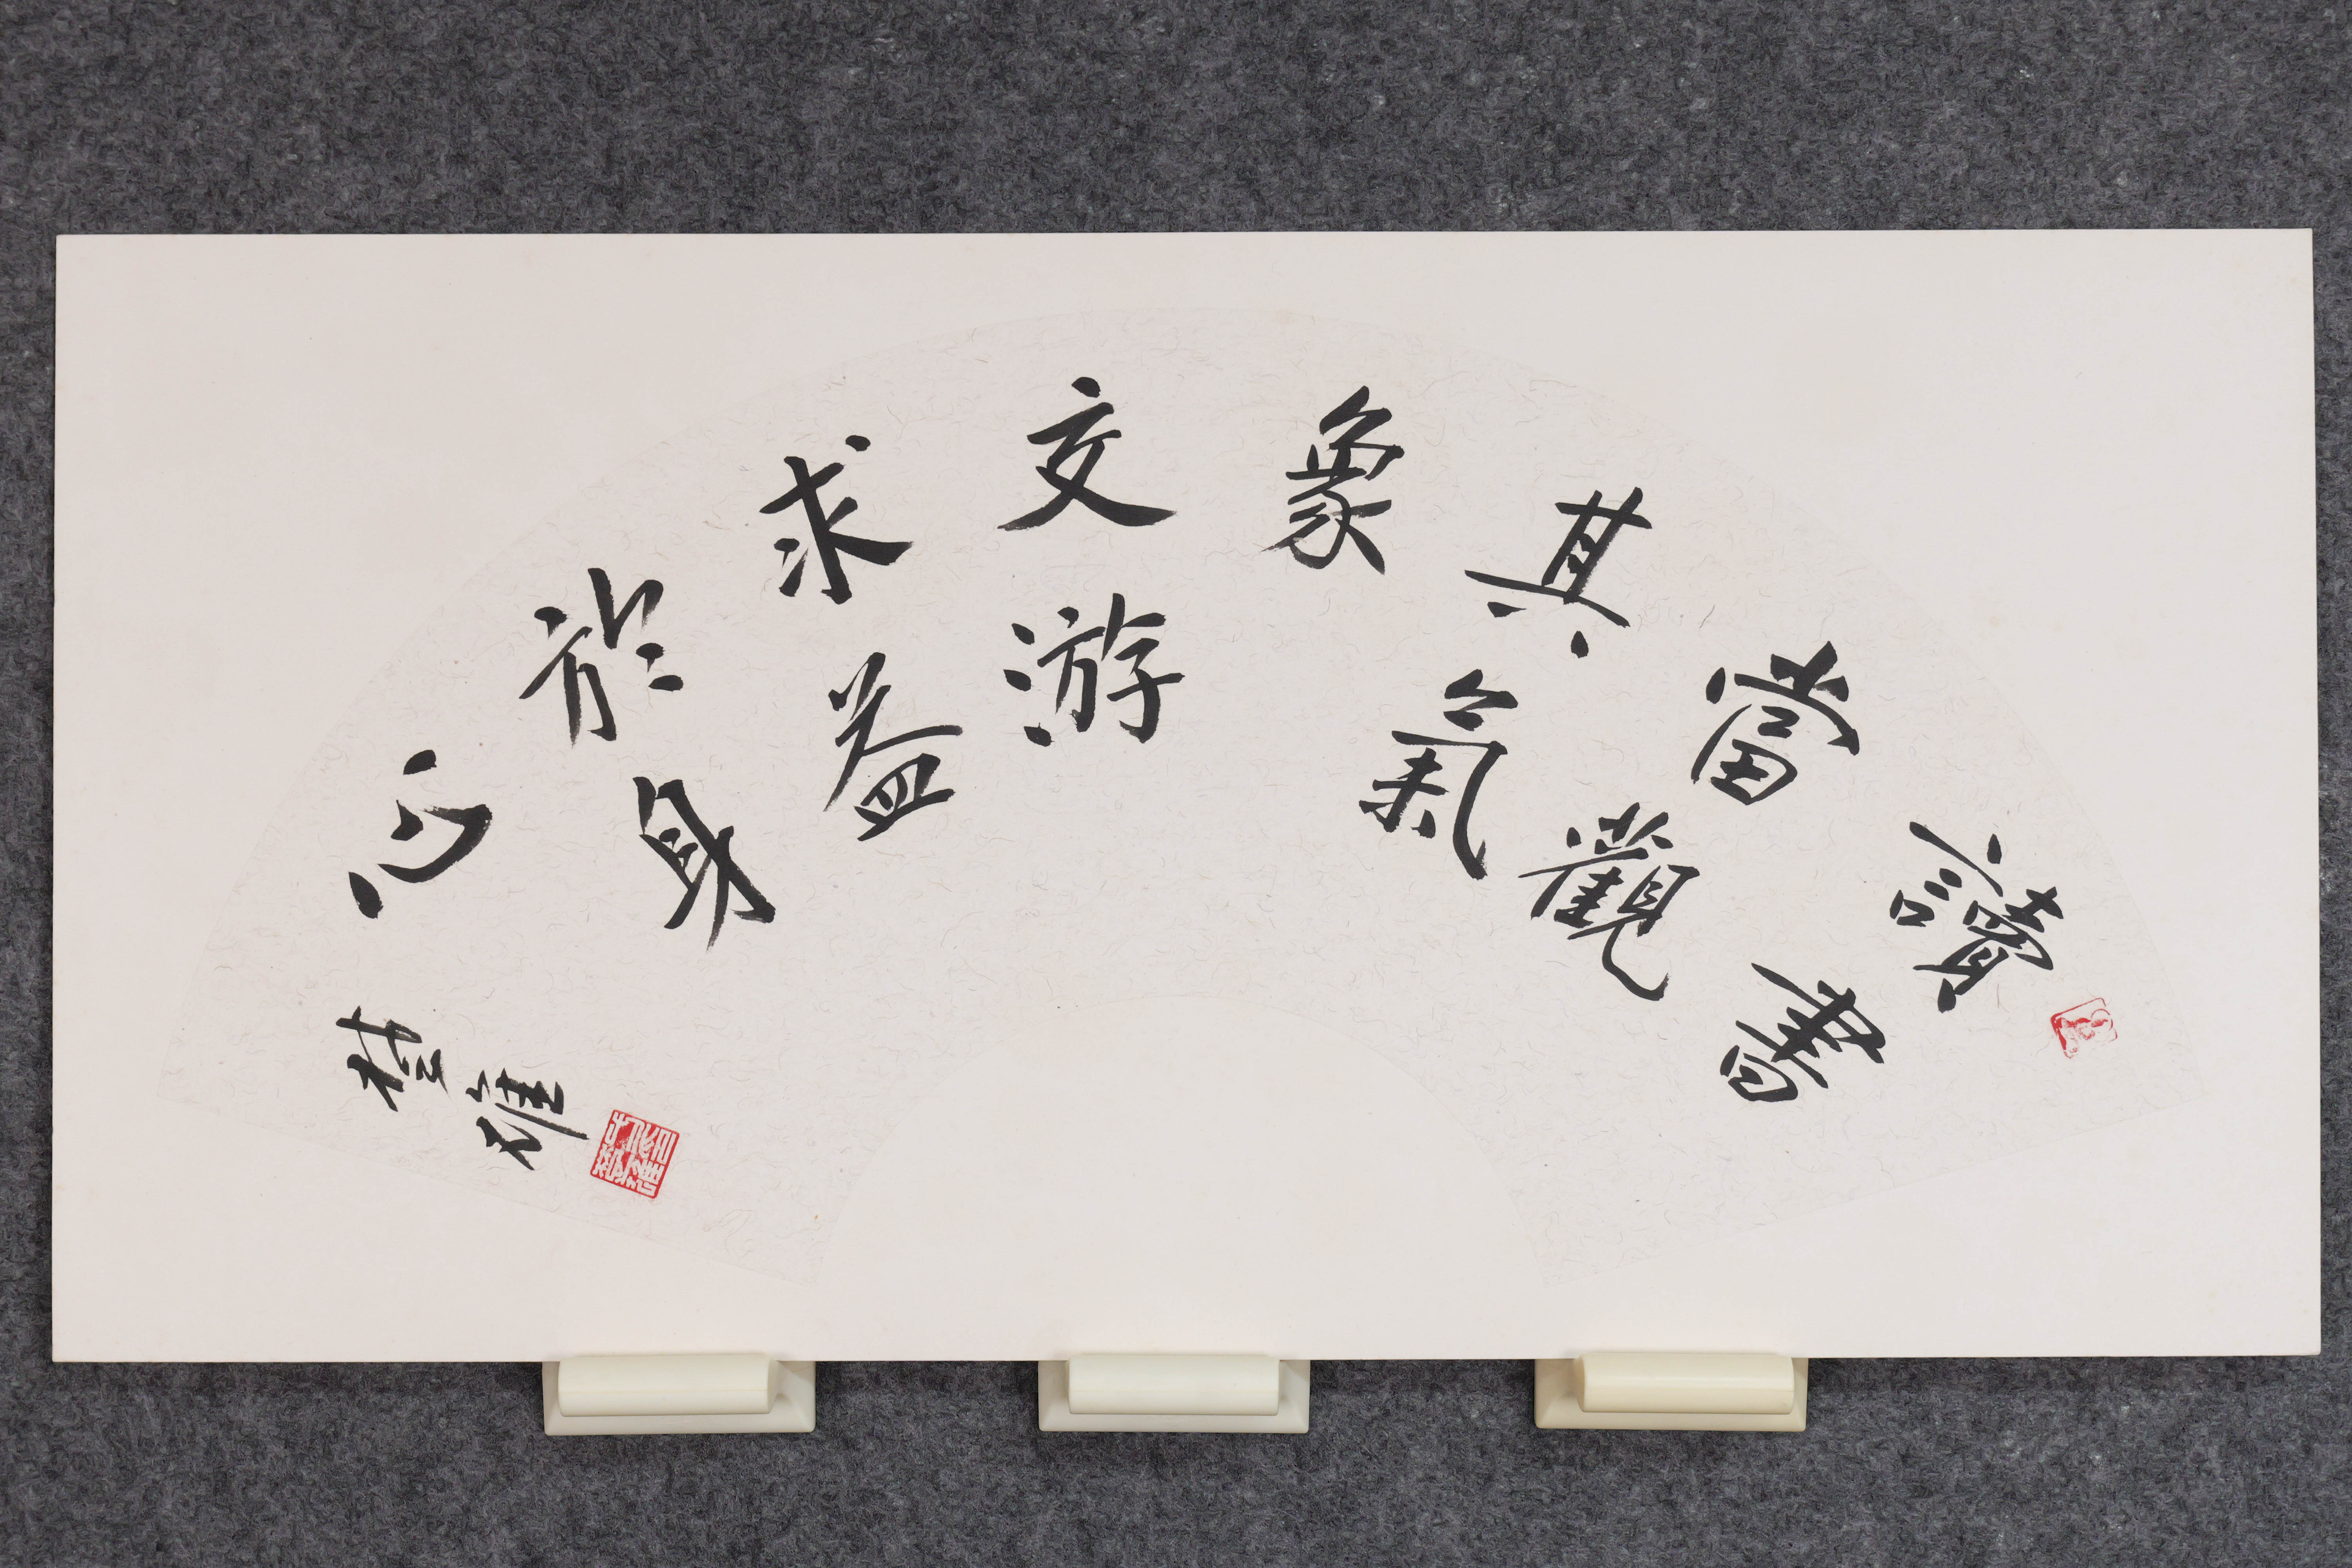 讀書
當觀
其氣
象
交游
求益
於身
心
桂雄